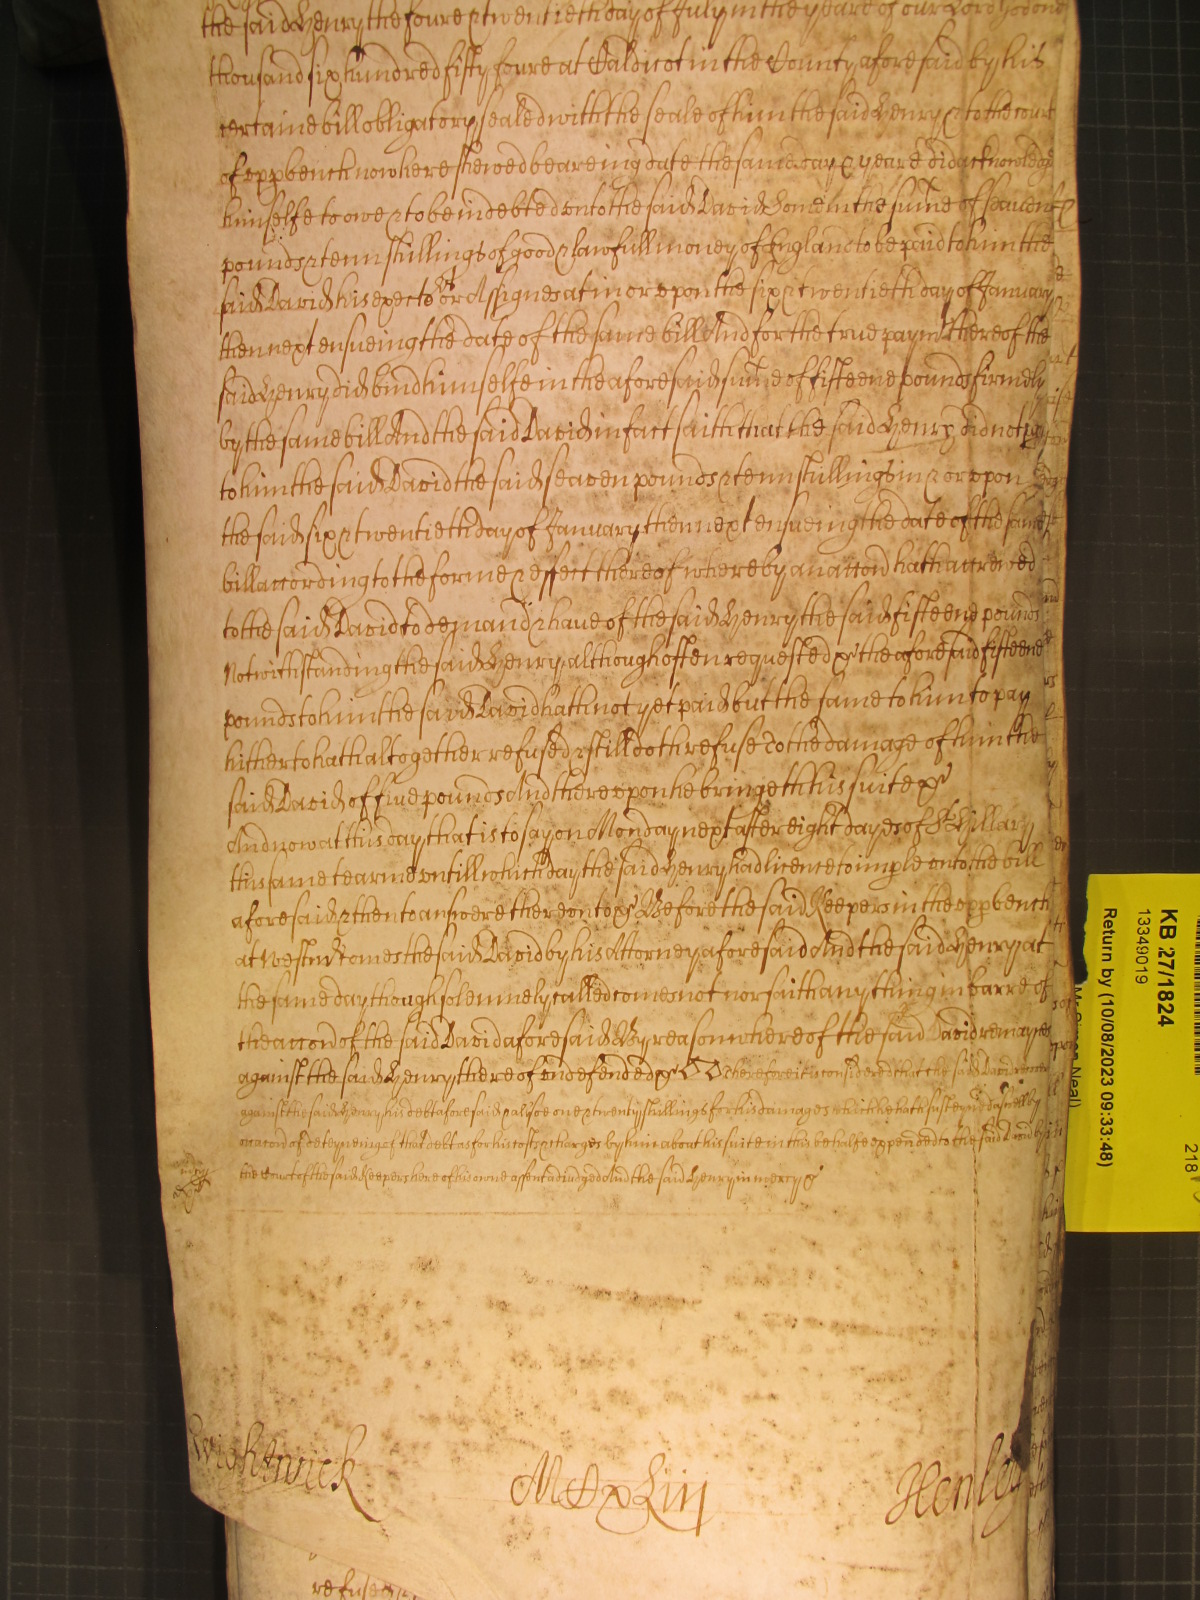 the said Henry the foure & twentieth day of July in the yeare of our Lord God one
thousand six hundred fifty foure at Caldicot in the County aforesaid by his
certaine bill obligatory sealed with the seale of him the said Henry & to the court
of upp bench now here shewed beareing date the same day & yeare did acknowledge
himselfe to owe & to be indebted unto the said David in the sume of seaven
pounds & tenn shillings of good & lawfull money of England to be paid to him the
said David his execto or Assignes at in or upon the six & twentieth day of January
then next ensueing the date of the same bill And for the true paymt thereof the
said Henry did bind himselfe in the aforesaid sume of fifteene pounds firmely
by the same bill And the said David in fact saith that the said Henry did not pay
to him the said David the said seaven pounds & tenn shillings in & or upon
the said six & twentieth day of January then next ensueing the date of the same
bill according to the forme & effect thereof whereby an accon hath accrewed
to the said David to demand & have of the said Henry the said fifteene pounds
Notwithstanding the said Henry although often requested &c the aforesaid fifteene
pounds to him the said David hath not yet paid but the same to him to pay
hitherto hath altogether refused & still doth refuse To the damage of him the
said David of five pounds And thereupon he bringeth his suite &c
And now at this day that is to say on Monday next after eight dayes of St Hillary
this same tearme untill which day the said Henry had licence to imple unto the bill
aforesaid & then to answere thereunto &c Before the said Keepers in the upp bench
at Westm comes the said David by his Attorney aforesaid And the said Henry at
the same day though solemnely called comes not nor saith any thing in barre of
the accon of the said David aforesaid By reason whereof the said David remaynes
against the said Henry thereof undefended &c Therefore it is considered that the said David recover
against the said Henry his debt aforesaid & alsoe one & twenty shillings for his damages which he hath susteyned aswell by
occacon of deteyneing of that debt as for his costs & charges by him about his suite in this behalfe expended to the said David by
the Court of the said Keepers here of his owne assent adjudged And the said Henry in mercy &c
mercy
Wightwick
MDxLiij
Henley
refused
KB 27/1824
13349019
Return by (10/08/2023 09:33:48)
Mr Simon Neal)
218